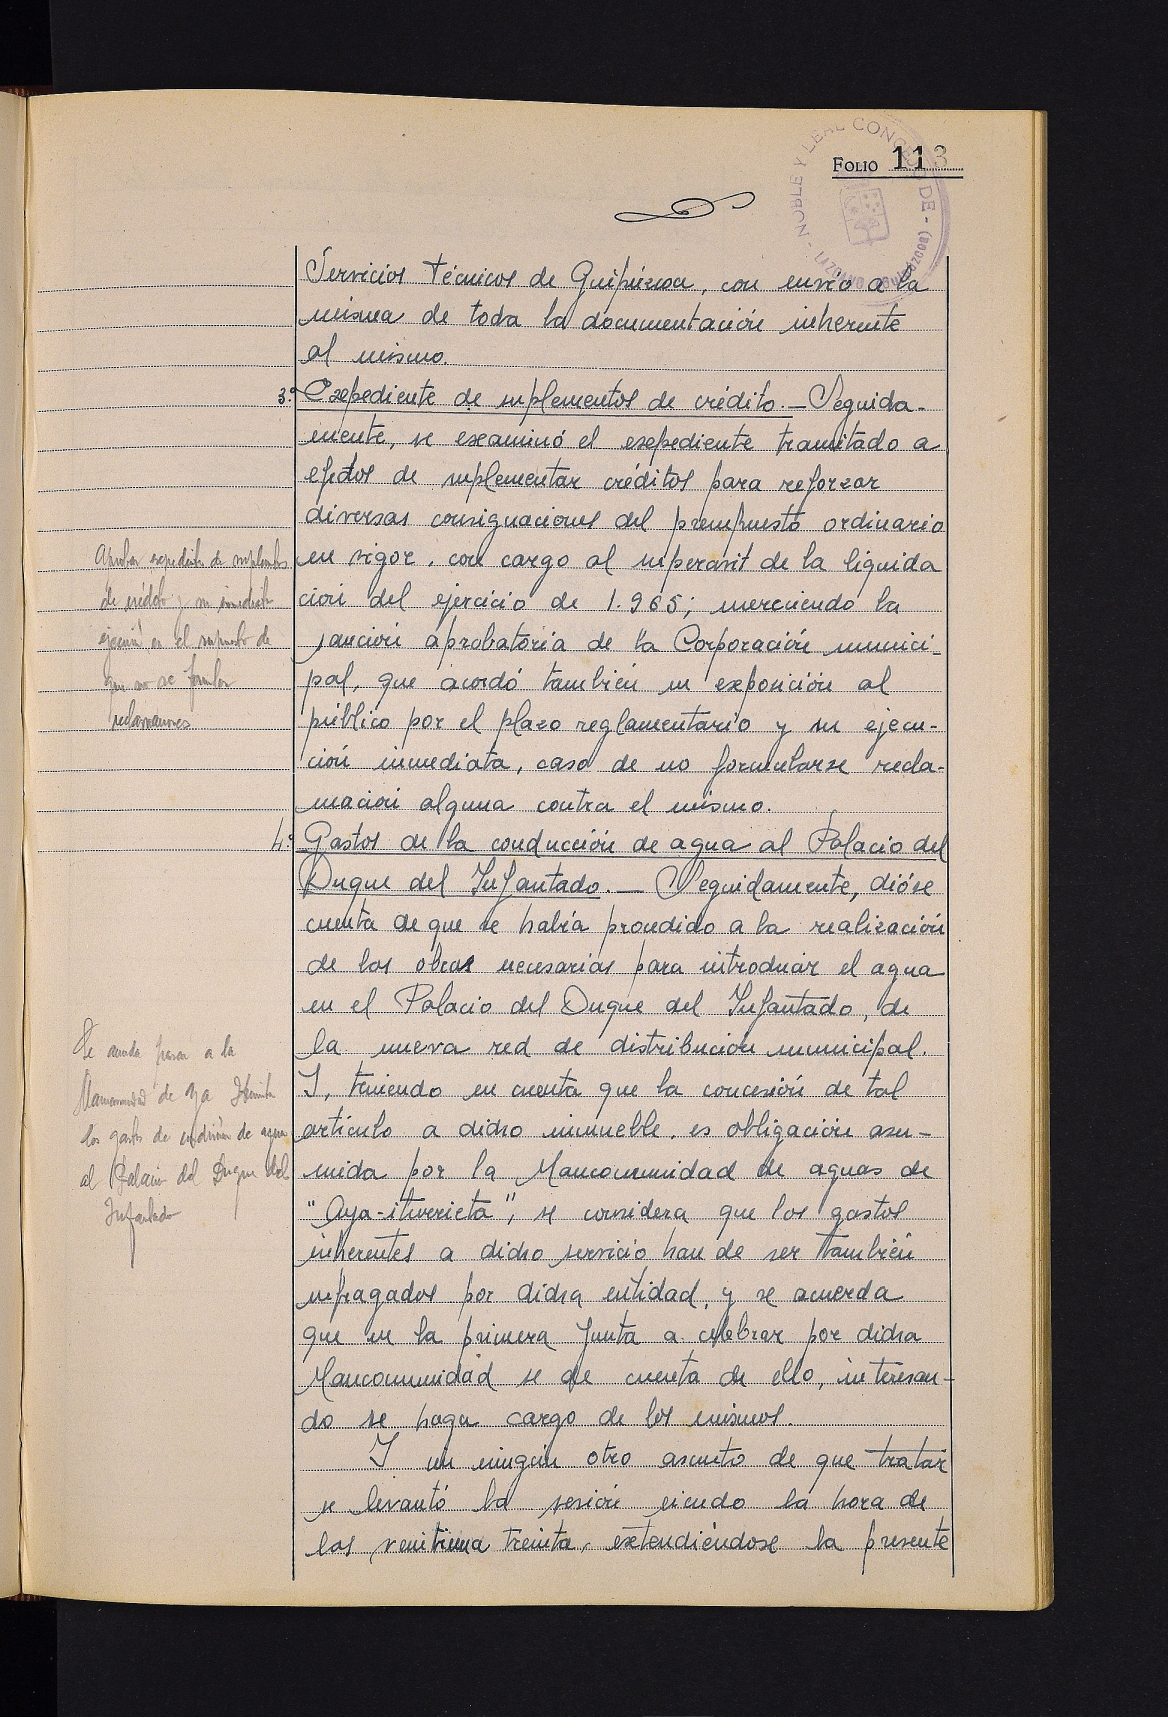 FOLIO 113
NOBLE Y LEAL CONCEJO DE - LAZCANO (GUIPUZCOA) -
Servicios Técnicos de Guipúzcoa, con envío a la
misma de toda la documentación inherente
al mismo.
3.º Expediente de suplementos de crédito.— Seguida-
mente, se examinó el expediente tramitado a
efectos de suplementar créditos para reforzar
diversas consignaciones del presupuesto ordinario
en vigor, con cargo al superávit de la liquida
ción del ejercicio de 1.965; mereciendo la
sanción aprobatoria de la Corporación munici-
pal, que acordó también su exposición al
público por el plazo reglamentario y su ejecu-
ción inmediata, caso de no formularse recla-
mación alguna contra el mismo.
Aprobar expediente de suplementos
de crédito y su inmediata
ejecución en el supuesto de
que no se formulen
reclamaciones
4.º Gastos de la conducción de agua al Palacio del
Duque del Infantado.— Seguidamente, dióse
cuenta de que se había procedido a la realización
de las obras necesarias para introducir el agua
en el Palacio del Duque del Infantado, de
la nueva red de distribución municipal.
Y, teniendo en cuenta que la concesión de tal
artículo a dicho inmueble, es obligación asu-
mida por la Mancomunidad de aguas de
"Aya-iturrieta", se considera que los gastos
inherentes a dicho servicio han de ser también
sufragados por dicha entidad, y se acuerda
que en la primera Junta a celebrar por dicha
Mancomunidad se de cuenta de ello, interesan-
do se haga cargo de los mismos.
Se acuerda pasar a la
Mancomunidad de Aya Iturrieta
los gastos de conducción de agua
al Palacio del Duque del
Infantado
Y sin ningún otro asunto de que tratar
se levantó la sesión siendo la hora de
las veintiuna treinta, extendiéndose la presente